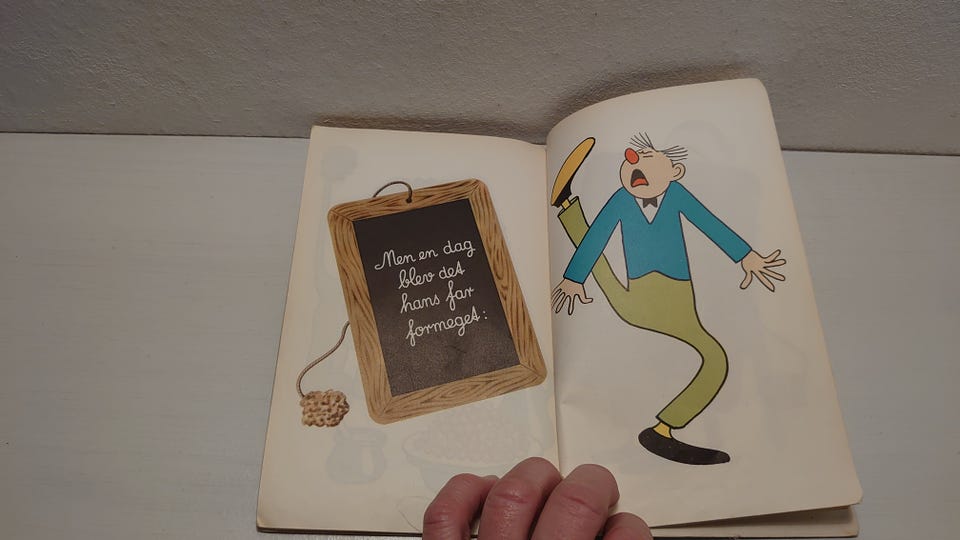 Men en dag
blev det
hans far
formeget: